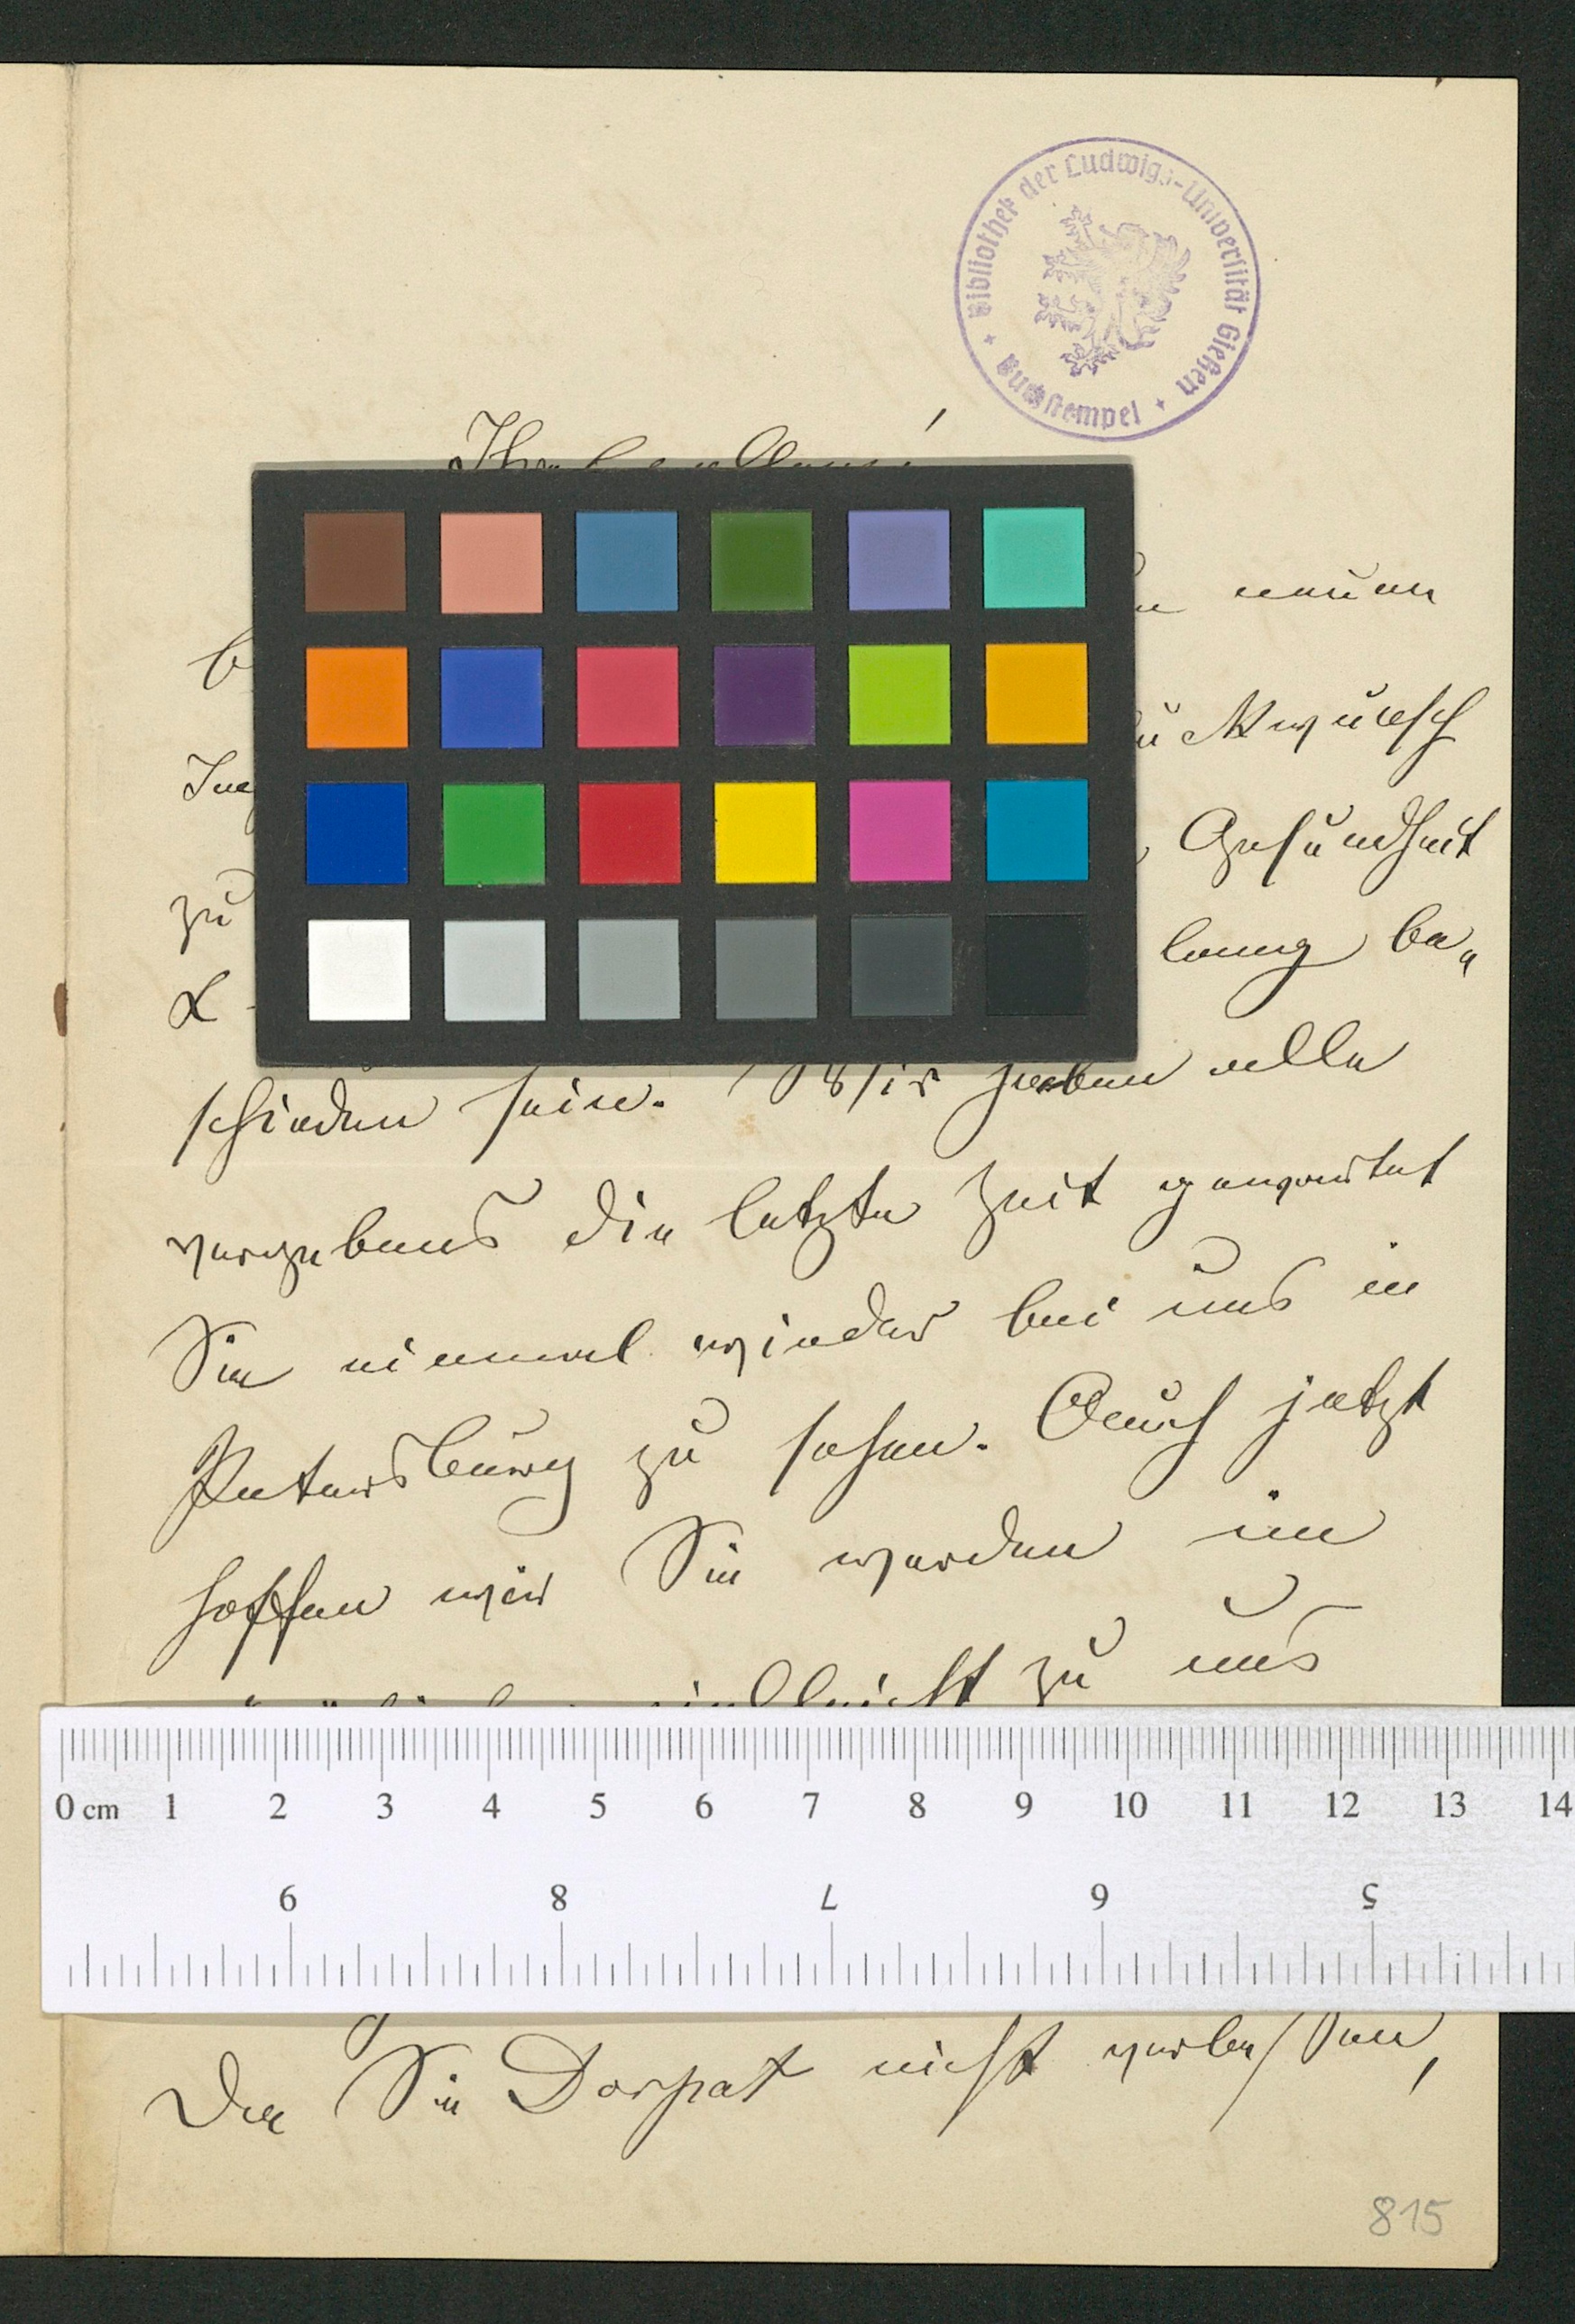 Bibliothek der Ludwigs-Universität Gießen
Buchstempel
neuen
Gesundheit
zu
be„
schieden sein. Wir haben alle
vergebens die letzte Zeit gewartet
Sie einmal wieder bei uns in
Petersburg zu sehen. Auch jetzt
hoffen wir Sie werden im
vielleicht zu uns
0 cm 1 2 3 4 5 6 7 8 9 10 11 12 13 14
9 8 7 6 5
Da Sie Dorpat nicht verlassen,
815